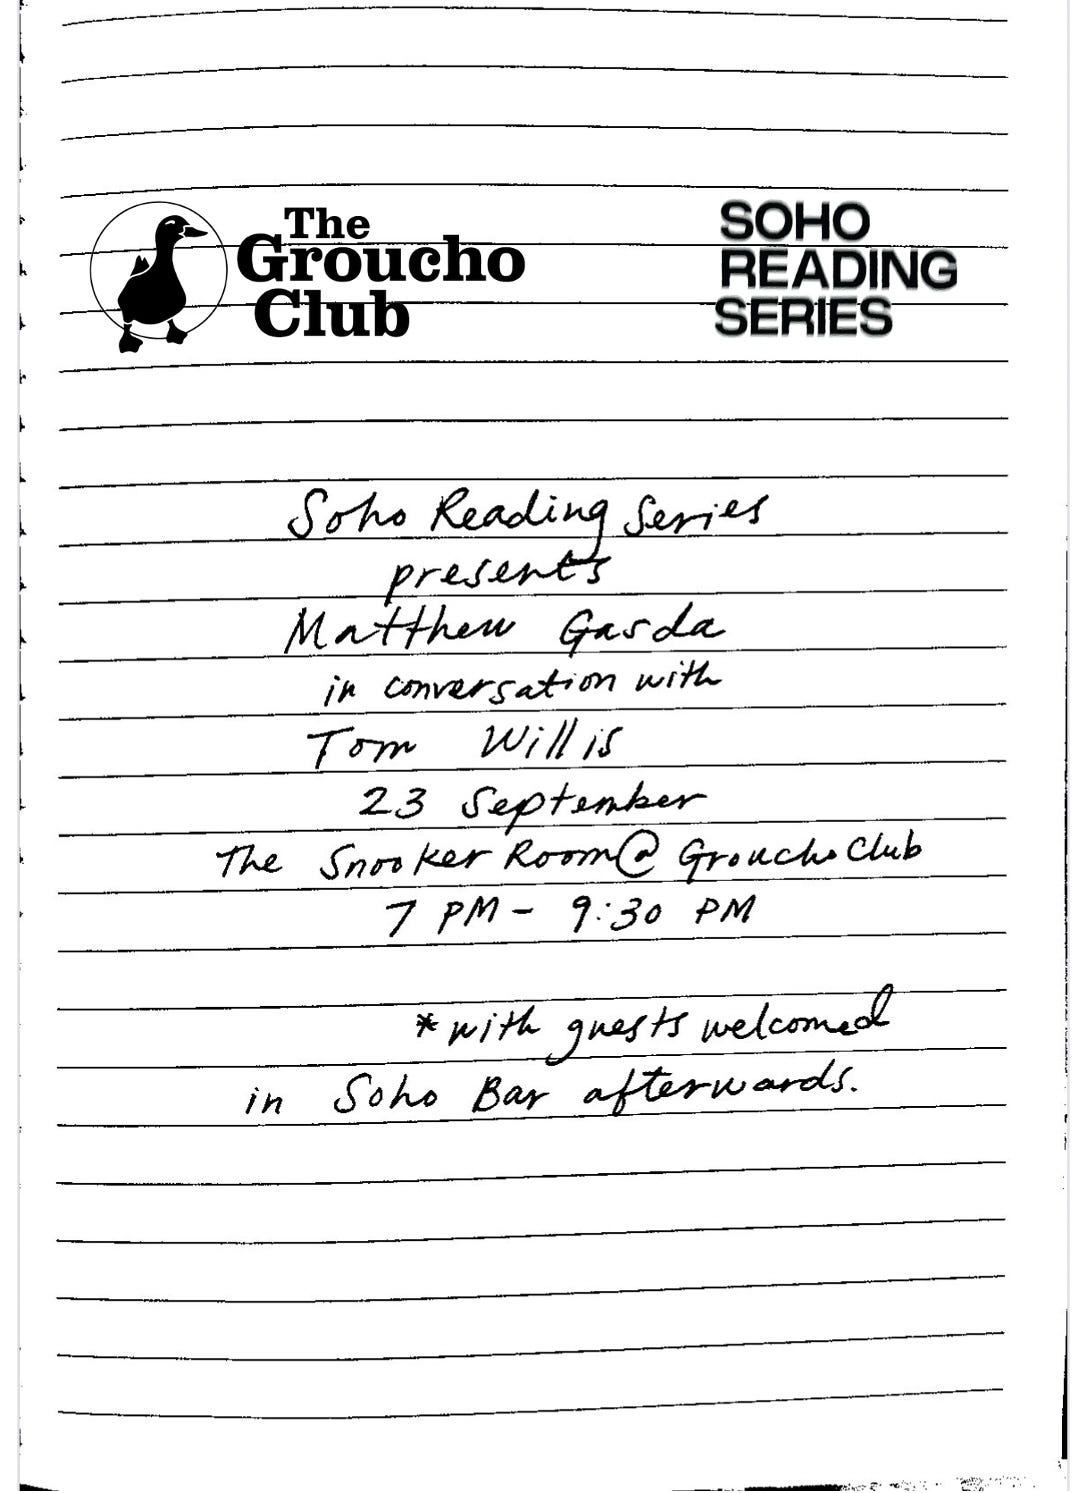 The
Groucho
Club
SOHO
READING
SERIES
Soho Reading Series
presents
Matthew Gasda
in conversation with
Tom Willis
23 September
The Snooker Room @ Groucho Club
7 PM - 9:30 PM
*with guests welcomed
in Soho Bar afterwards.